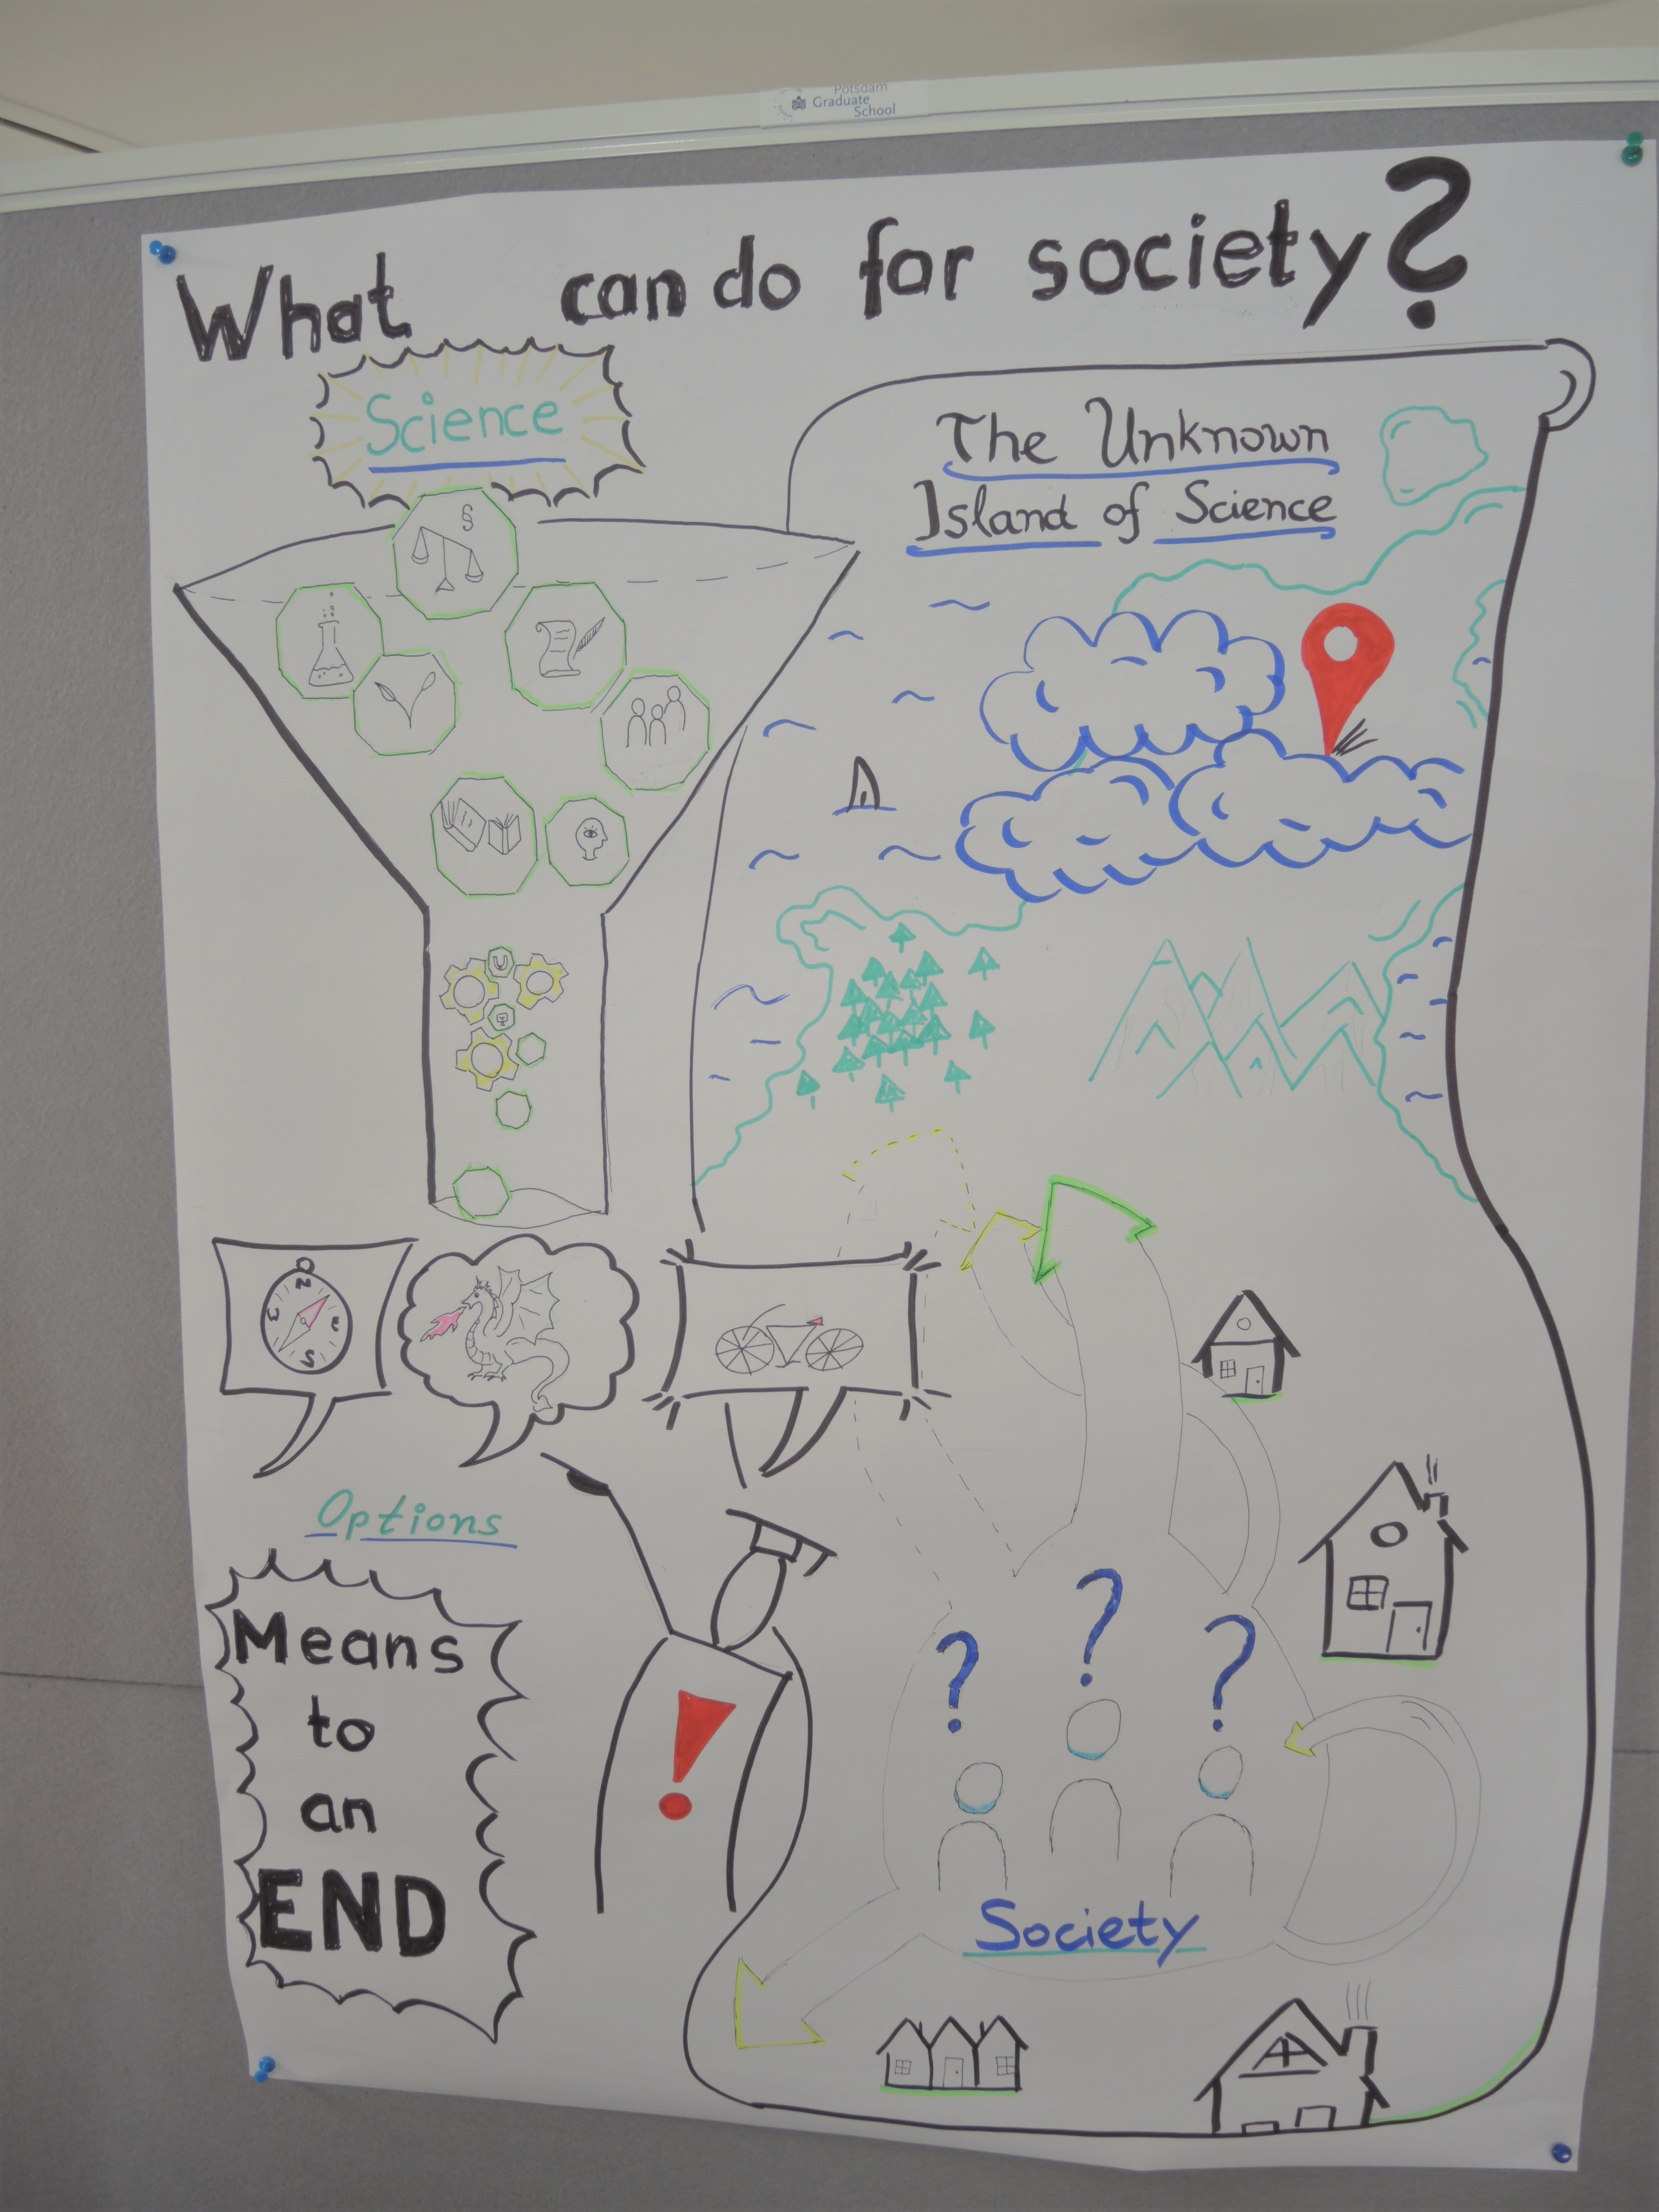 Potsdam
Graduate
School
What can do for society?
Science
§
The Unknown
Island of Science
N
E
S
W
Options
Means
to
an
END
!
? ? ?
Society